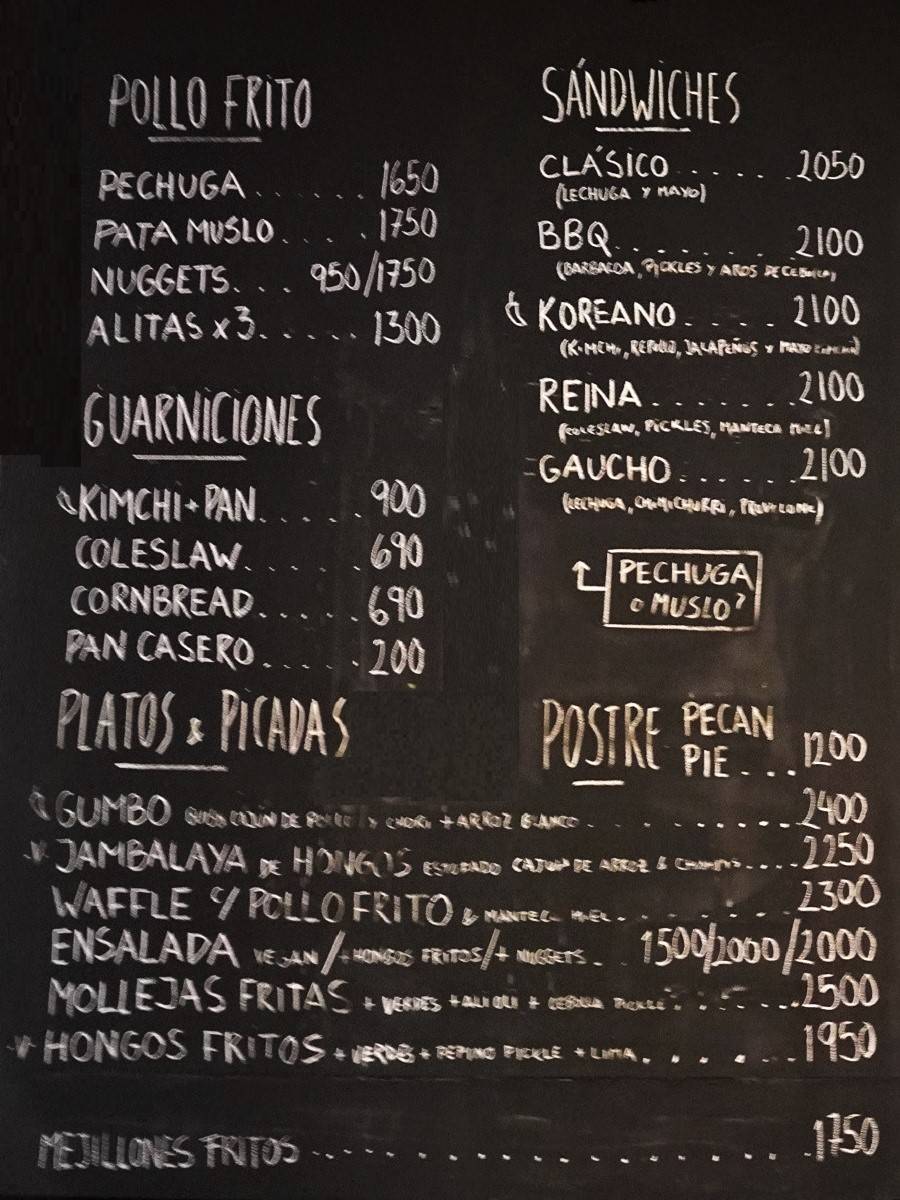 POLLO FRITO
PECHUGA......1650
PATA MUSLO....1750
NUGGETS....950/1750
ALITAS x3.....1300
GUARNICIONES
KIMCHI+PAN.....900
COLESLAW.....690
CORNBREAD.....690
PAN CASERO.....200
SÁNDWICHES
CLÁSICO......2050
(LECHUGA Y MAYO)
BBQ......2100
(BARBACOA, PICKLES Y AROS DE CEBOLLA)
KOREANO.....2100
(KIMCHI, REPOLLO, JALAPEÑOS Y MAYO KIMCHI)
REINA.......2100
(COLESLAW, PICKLES, MANTECA MIEL)
GAUCHO......2100
(LECHUGA, CHIMICHURRI, PROVOLONE)
PECHUGA
o MUSLO?
POSTRE PECAN
PIE....1200
PLATOS & PICADAS
GUMBO GUISO CAJUN DE POLLO Y CHORI + ARROZ BLANCO.......2400
JAMBALAYA DE HONGOS ESTOFADO CAJUN DE ARROZ & CHAMPIS....2250
WAFFLE C/ POLLO FRITO & MANTECA MIEL.......2300
ENSALADA VEGAN/+HONGOS FRITOS/+ NUGGETS.. 1500/2000/2000
MOLLEJAS FRITAS + VERDES + ALI OLI + CEBOLLA PICKLE.......2500
HONGOS FRITOS + VERDES + PEPINO PICKLE + LIMA.......1950
MEJILLONES FRITOS...............1750